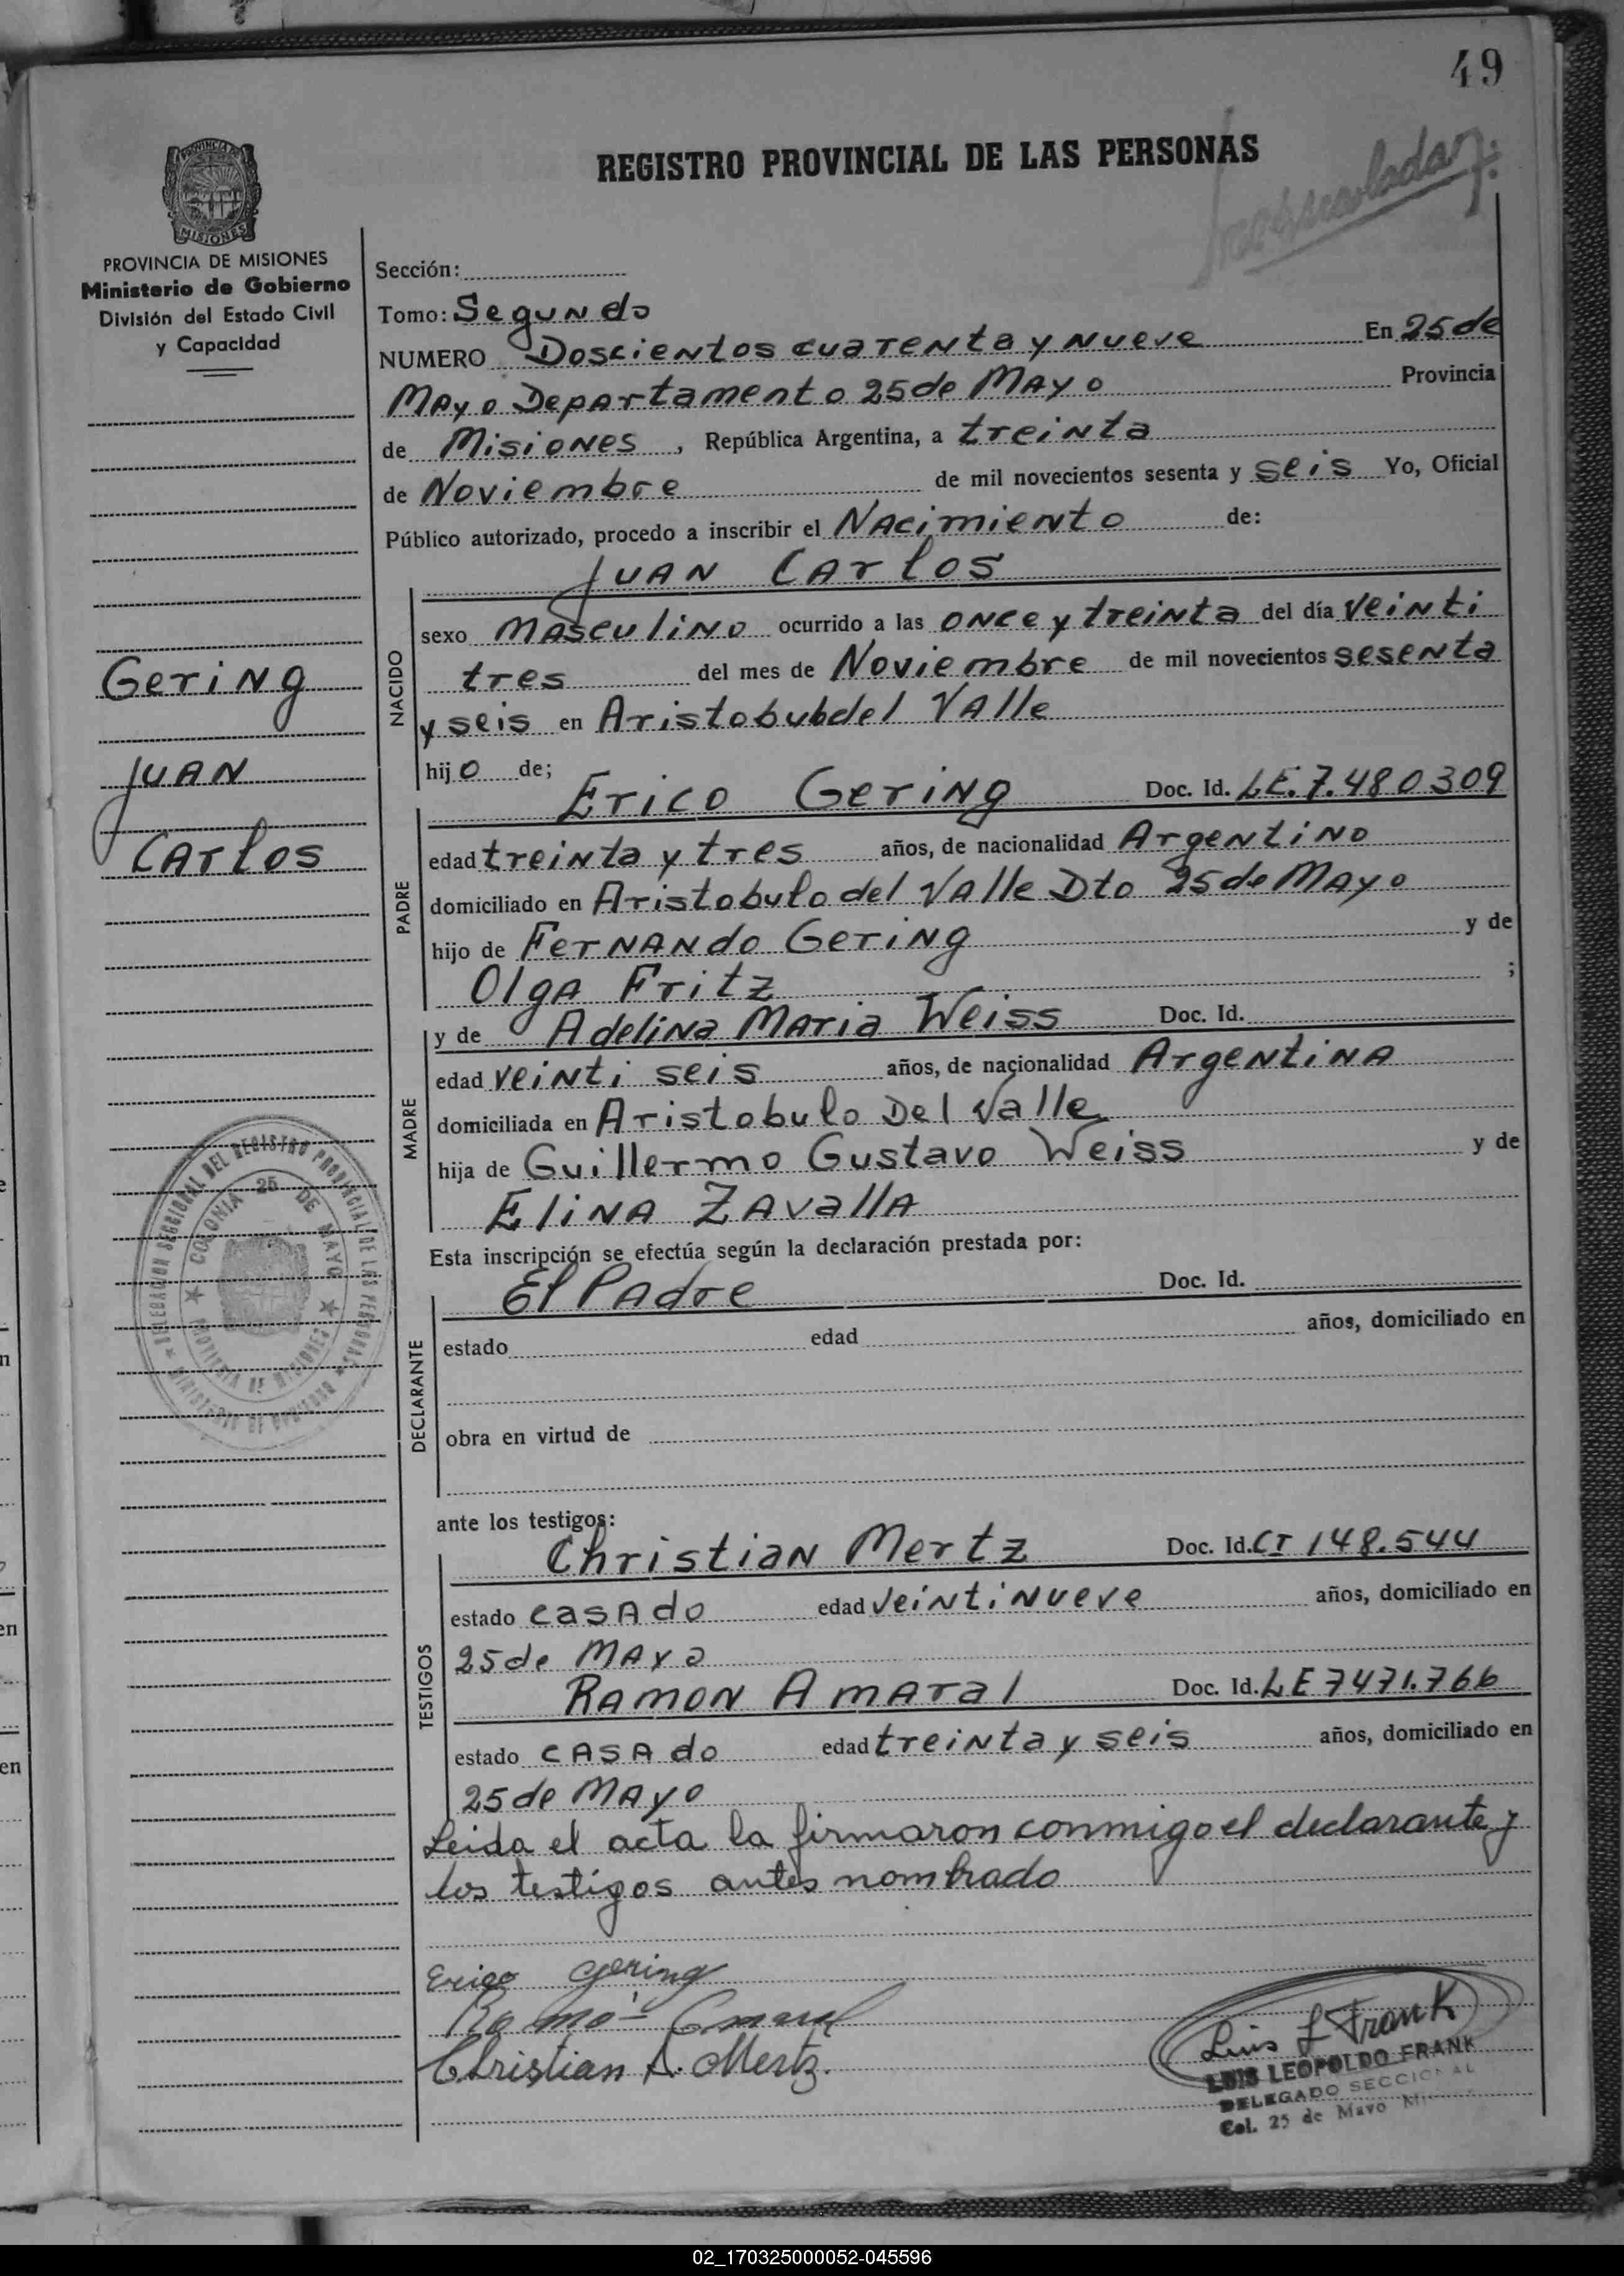 49
REGISTRO PROVINCIAL DE LAS PERSONAS
PROVINCIA DE
MISIONES
PROVINCIA DE MISIONES
Ministerio de Gobierno
División del Estado Civil
y Capacidad
Sección:
Tomo: Segundo
NUMERO Doscientos cuarenta y nueve En 25 de
Mayo Departamento 25 de Mayo Provincia
de Misiones, República Argentina, a treinta
de Noviembre de mil novecientos sesenta y seis Yo, Oficial
Público autorizado, procedo a inscribir el Nacimiento de:
Juan Carlos
NACIDO
sexo masculino ocurrido a las once y treinta del día veinti
tres del mes de Noviembre de mil novecientos sesenta
y seis en Aristobubdel Valle
hijo de;
Gering
Juan
Carlos
Erico Gering Doc. Id. LE. 7.480309
PADRE
edad treinta y tres años, de nacionalidad Argentino
domiciliado en Aristobulo del Valle Dto 25 de Mayo
hijo de Fernando Gering y de
Olga Fritz ;
y de Adelina Maria Weiss Doc. Id.
MADRE
edad veinti seis años, de nacionalidad Argentina
domiciliada en Aristobulo Del Valle
hija de Guillermo Gustavo Weiss y de
Elina Zavalla
DELEGACION SECCIONAL DEL REGISTRO PROVINCIAL DE LAS PERSONAS
MINISTERIO DE GOBIERNO
COLONIA 25 DE MAYO
PROVINCIA DE MISIONES
Esta inscripción se efectúa según la declaración prestada por:
El Padre Doc. Id.
DECLARANTE
estado edad años, domiciliado en
obra en virtud de
ante los testigos:
Christian Mertz Doc. Id. CI 148.544
TESTIGOS
estado casado edad veintinueve años, domiciliado en
25 de Mayo
Ramon Amaral Doc. Id. LE 7471.766
estado casado edad treinta y seis años, domiciliado en
25 de Mayo
Leida el acta la firmaron conmigo el declarante y
los testigos antes nombrado
Erico Gering
Ramó Amaral
Christian A. Mertz.
Luis L Frank
LUIS LEOPOLDO FRANK
DELEGADO SECCIONAL
Col. 25 de Mayo
02_170325000052-045596